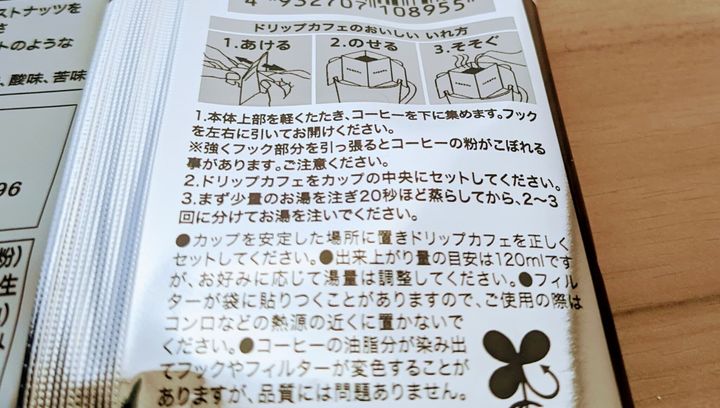 ストナッツを
さ
トのような
酸味、苦味
96
粉)
生
4 932707 108955
ドリップカフェのおいしいいれ方
1.あける 2.のせる 3.そそぐ
1.本体上部を軽くたたき、コーヒーを下に集めます。フック
を左右に引いてお開けください。
※強くフック部分を引っ張るとコーヒーの粉がこぼれる
事があります。ご注意ください。
2.ドリップカフェをカップの中央にセットしてください。
3.まず少量のお湯を注ぎ20秒ほど蒸らしてから、2〜3
回に分けてお湯を注いでください。
●カップを安定した場所に置きドリップカフェを正しく
セットしてください。●出来上がり量の目安は120mlです
が、お好みに応じて湯量は調整してください。●フィル
ターが袋に貼りつくことがありますので、ご使用の際は
コンロなどの熱源の近くに置かないで
ください。●コーヒーの油脂分が染み出
てフックやフィルターが変色することが
ありますが、品質には問題ありません。